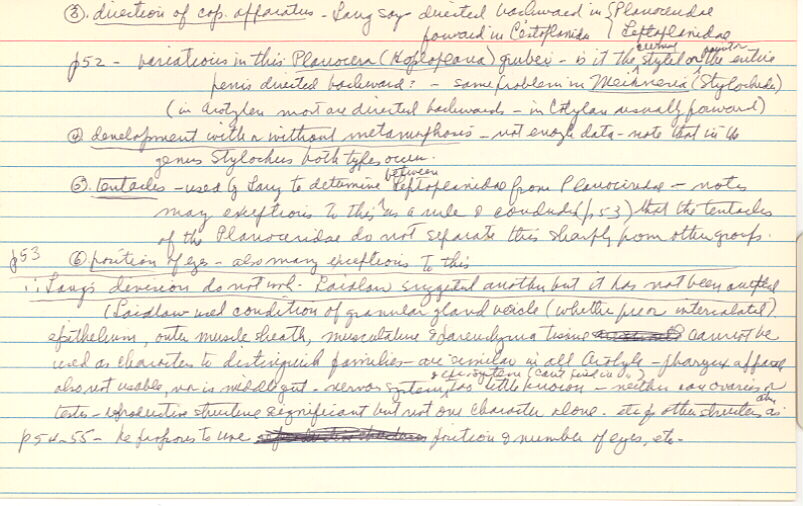 ③. direction of cop. apparatus - Lang say directed backward in { Planoceridae
forward in Cestoplanidae { Leptoplanidae
p52 - variations in this Planocera (Hoploplana) grubei - is it the curved stylet or the entire
penis directed backward? - same problem in Meixneria (Stylochidae)
(in Acotylea most are directed backwards - in Cotylea usually forward)
④ development with or without metamorphosis - not enough data - note that in the
genus Stylochus both types occur.
⑤. tentacles - used by Lang to determine between Leptoplanidae from Planoceridae - notes
many exceptions to this as a rule & concludes (p53) that the tentacles
of the Planoceridae do not separate this sharply from other groups.
p53 ⑥ position of eyes - also many exceptions to this
∴ Lang's division do not work. Laidlaw suggested another but it has not been accepted
(Laidlaw used condition of granular gland vesicle (whether free or intercalated).
epithelium, outer muscle sheath, musculature & parenchyma tissue cannot be
used as characters to distinguish families - are similar in all Acotylea - pharynx apparatus
also not usable, nor is middle gut - nervous system, too little known - neither can ovaries or
testes - reproductive structure significant but not one character alone. etc of other structures as
p54-55 - he proposes to use position & number of eyes, etc.